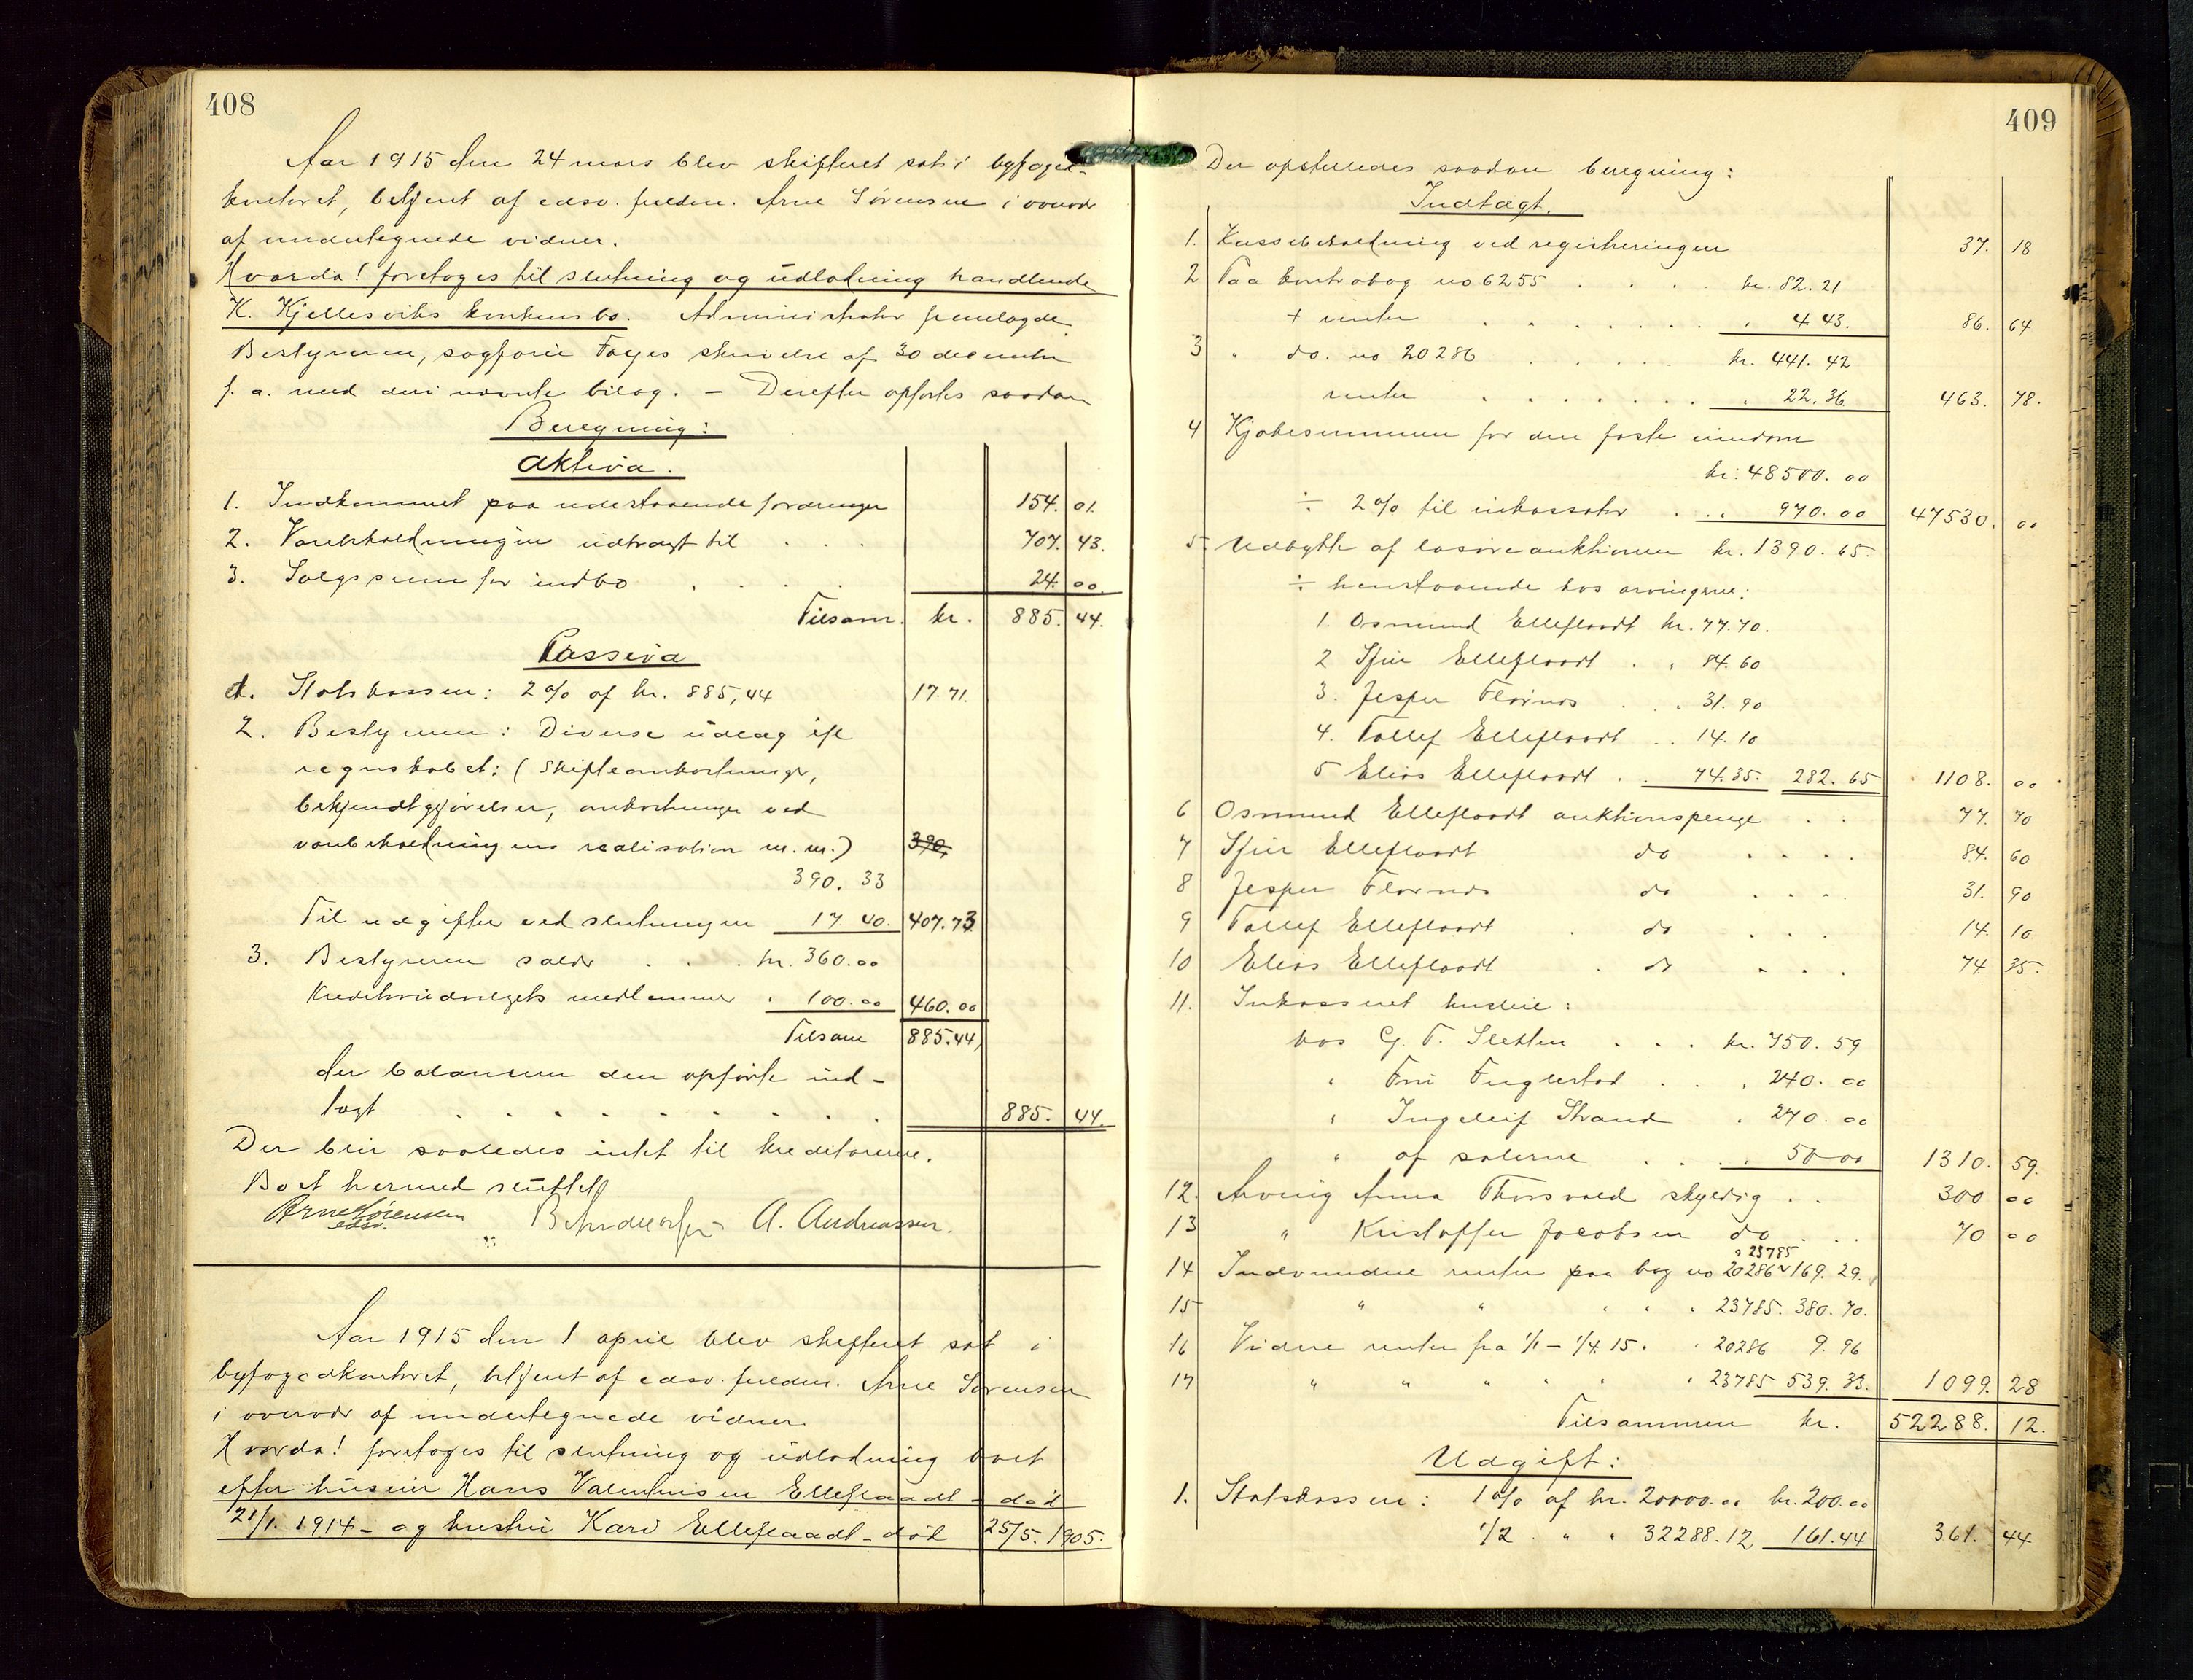 408
Aar 1915 den 24 mars blev skifteret sat i byfoged-
kontoret, betjent af edsv. fuldm. Arne Sørensen i overvær
af undertegnede vidner.
Hvorda! foretoges til slutning og udlodning handlende
K. Kjellesviks konkursbo. Administrator fremlagde
Bestyreren, sagfører Fayes skrivelse af 30 december
f. a. med deri nævnte bilag. — Derefter opførtes saadan
Beregning:
Aktiva.
1. Indkommet paa udestaaende fordringer 154. 01.
2. Varebeholdningen udbragt til . . . 707. 43.
3. Salgssum for indbo . . . . 24. 00.
Tilsam. kr. 885. 44.
Passiva
1. Statskassen: 2 % af kr. 885,44 17.71.
2. Bestyreren: Diverse udlæg ifl
regnskabet: (Skifteomkostninger,
bekjendtgjørelser, omkostninger ved
varebeholdningens realisation m. m.) 390,
390. 33
Til udgifter ved slutningen 17. 40. 407.73
3. Bestyreren salær . . . kr. 360.00
Kreditorudvalgets medlemmer " 100.00 460.00
Tilsam 885.44,
der balancerer den opførte ind-
tægt . . . . . . . . . 885. 44.
Der blir saaledes intet til kreditorerne.
Boet hermed sluttet
Arne Sørensen
edsv.
A. Andreassen.
Aar 1915 den 1 april blev skifteret sat i
byfogedkontoret, betjent af edsv. fuldm. Arne Sørensen
i overvær af undertegnede vidner.
Hvorda! foretoges til slutning og udlodning boet
efter huseier Hans Valentinsen Elleflaadt – død
21/1. 1914 – og hustru Kari Elleflaadt – død 25/5. 1905.
409
Der opstilledes saadan beregning:
Indtægt.
1. Kassebeholdning ved registreringen 37. 18
2 Paa kontrabog no 6255 . . . . kr. 82. 21
+ renter . . . . . . " 4. 43. 86. 64
3 " do. no 20286 . . . . . kr. 441. 42
renter . . . . . . . " 22. 36. 463. 78.
4 Kjøbesummen for den faste eiendom
kr: 48500. 00
÷ 2 % til inkassator . . " 970. 00 47530. 00
5 Udbytte af løsøreauktionen kr. 1390. 65.
÷ henstaaende hos arvingerne:
1. Osmund Elleflaadt kr. 77.70.
2 Elleflaadt . " 84. 60
3. Jesper . . " 31. 90
4. Tollef Elleflaadt . . 14. 10
5 Elias Elleflaadt . . 74. 35. 282. 65 1108. 00
6 Osmund Elleflaadt auktionspenge . . 77. 70
7 Elleflaadt do . . . . 84. 60
8 Jesper do . . . 31. 90
9 Tollef Elleflaadt . do . . . 14. 10
10 Elias Elleflaadt . do . . . 74 35.
11. Inkasseret husleie:
hos G. T. Sletten . . . kr. 750. 59
" Fru Fuglestad . . " 240. 00
" Ingeleif Strand " 270. 00
" af salerne . . . " 50 00 1310. 59.
12. Arving Anna Thorsvald skyldig . . 300 00
13 " Kristoffer Jacobsen do . . . 70 00
14 Indvundne renter paa bog no 20286 og 23785 169. 29.
15 " " " " " 23785. 380. 70.
16 Videre renter fra 1/1 – 1/4. 15. " 20286 9. 96
17 " " " " " " 23785 539. 33. 1099. 28
Tilsammen kr. 52288. 12.
Udgift:
1. Statskassen: 1 % af kr. 20000.00 kr. 200.00
1/2 " " 32288.12 161.44 361. 44